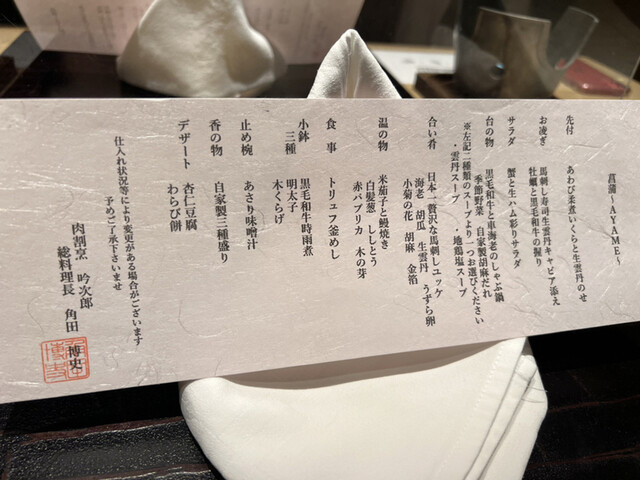 菖蒲～AYAME～
先付　あわび柔煮いくらと生雲丹のせ
お凌ぎ　馬刺し寿司生雲丹キャビア添え
牡蠣と黒毛和牛の握り
サラダ　蟹と生ハム彩りサラダ
台の物　黒毛和牛と車海老のしゃぶ鍋
季節野菜　自家製胡麻だれ
※左記二種類のスープより一つお選びください
・雲丹スープ　・地鶏塩スープ
合い肴　日本一贅沢な馬刺しユッケ
海老　胡瓜　生雲丹　うずら卵
小菊の花　胡麻　金箔
温の物　米茄子と鰻焼き
白髪葱　ししとう
赤パプリカ　木の芽
食事　トリュフ釜めし
小鉢三種　黒毛和牛時雨煮
明太子
木くらげ
止め椀　あさり味噌汁
香の物　自家製三種盛り
デザート　杏仁豆腐
わらび餅
仕入れ状況等により変更がある場合がございます
予めご了承下さいませ
肉割烹　吟次郎
総料理長　角田　博史